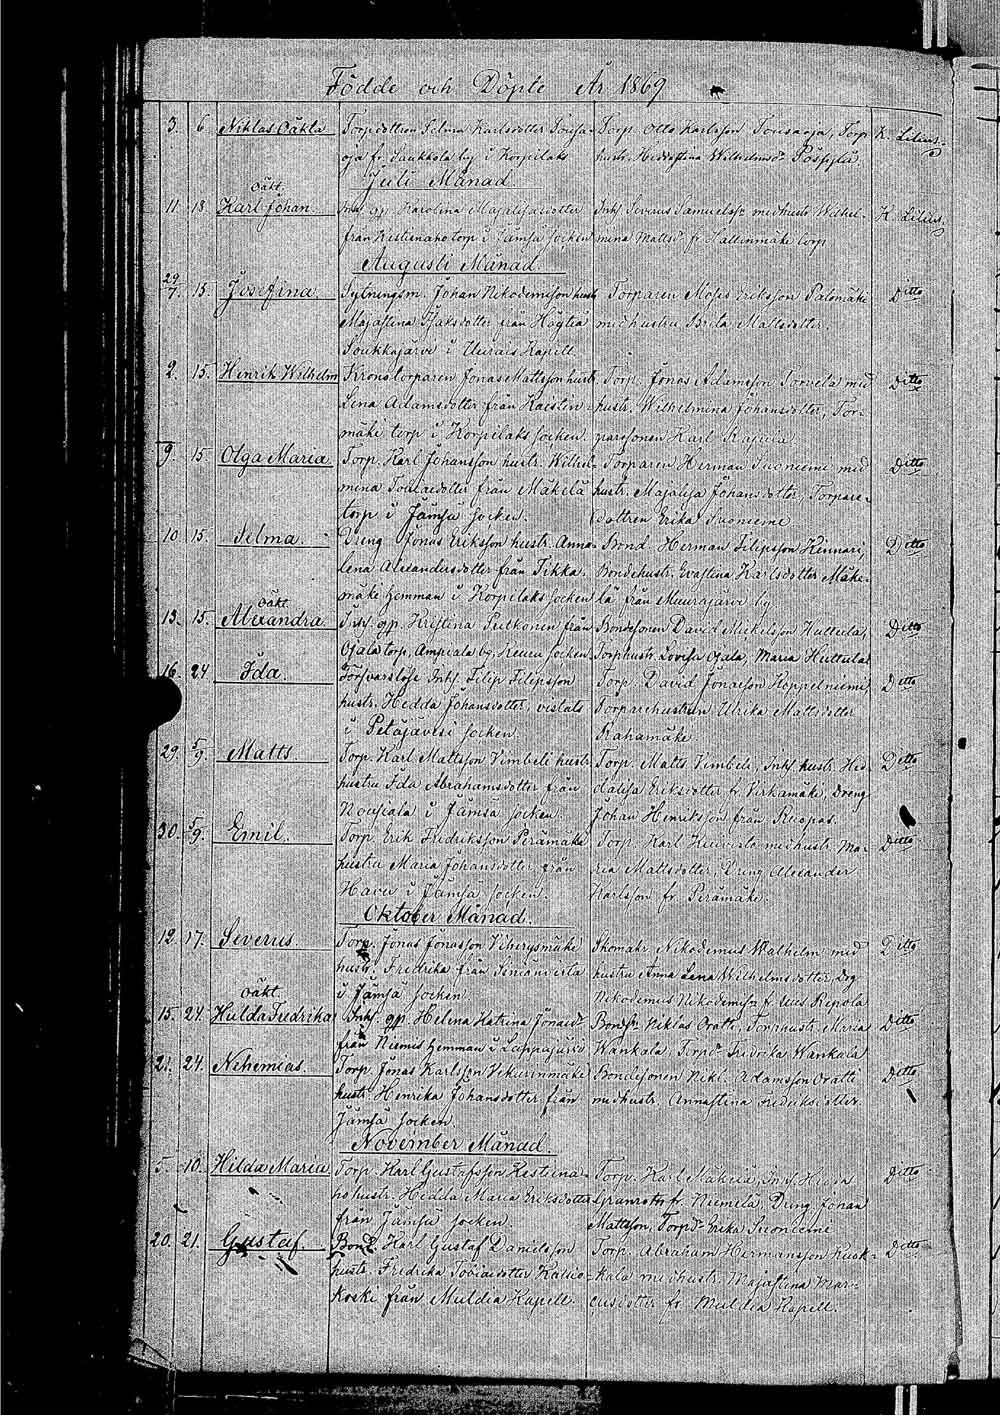 Födde och Döpte År 1869
3. 6 Niklas Oäkta Torpdottren Selma Karlsdotter Torp. Otto Karlsson Torp. K. Lilius.
oja fr. Saukkola by i Korpilaks hustr. Hedda Stina Wilhelmsdr
Juli Månad.
oäkt.
11. 18. Karl Johan. Inh. gp. Karolina Majalisasdotter Inh. Severus Samuelss. med hustr. Wilhel- K. Lilius
från Kestienaho torp i Jämsä Socken mina Mattsdr fr. Hallinmäki torp
Augusti Månad.
29/7. 15. Josefina. Sytningsm. Johan Nikodemisson hustr. Torparen Moses Eriksson Palomäki Ditto
Majastina Isaksdotter från Högtiä med hustru Brita Mattsdotter.
Soukkajärvi i Uurais Kapell.
2. 15. Henrik Wilhelm Kronotorparen Jonas Mattsson hustr. Torp. Jonas Adamsson Torvela med Ditto
Lena Adamsdotter från hustr. Wilhelmina Johansdotter, Tor-
mäki torp i Korpilaks Socken. paresonen Karl
9. 15 Olga Maria Torp. Karl Johansson hustr. Wilhel- Torparen Herman Suoniemi med Ditto
mina Tobiaedotter från Mäkelä hustr. Majalisa Johansdotter, Torpare-
torp i Jämsä Socken. dottren Erika Suoniemi
10. 15. Selma. Dreng Jonas Eriksson hustr. Anna- Bond. Herman Filipsson Kinnari Ditto
lena Alexandersdotter från Tikka- Bondehustr. Evastina Karlsdotter Mäke-
mäki hemman i Korpilaks Socken lä från Muurajärvi by
oäkt.
13. 15. Alexandra Inh. gp. Kristina Pulkonen från Bondesonen David Mickelsson Huttula, Ditto
Ojala torp, Ampiala by, Keuru Socken. Torphustr. Lovisa Ojala, Maria Huttula
16. 24. Ida. Försvarslöse Inh. Filip Filipsson Torp. David Jonasson Koppelniemi, Ditto
hustr. Hedda Johansdotter, vistats Torparehustrun Ulrika Mattsdotter
i Petäjävesi Socken Rahamäki
29. 5/9. Matts. Torp. Karl Mattsson Vimbeli hustr. Torp. Matts Vimbeli, Inh. hustr. Hed- Ditto
hustru Ida Abrahamsdotter från dalisa Eriksdotter fr. Virkamäki, Dreng
i Jämsä Socken Johan Henriksson från Ruopas.
30. 5/9. Emil. Torp. Erik Fredriksson Perämäki Torp. Karl med hustr. Ma- Ditto
hustru Maria Johansdotter från ria Mattsdotter, Dreng Alexander
Havu i Jämsä Socken. Karlsson fr. Perämäki.
Oktober Månad.
12. 17. Severus. Torp. Jonas Jonasson Skomak. Nikodemus Walhelm med Ditto
hustr. Fredrika från hustru Anna Lena Wilhelmsdotter, Drg
i Jämsä Socken. Nikodemus Nikodemiss. f. Repola
oäkt.
15. 24 Hulda Fredrika Inh. gp. Helena Katrina Jonaedr Bonds. Niklas Oratti, Torphustr. Maria Ditto
från Niemis hemman i Lappajärvi Wankala Torpdr Fredrika Wankala
21. 24. Nehemias. Torp. Jonas Karlsson Vekurinmäki Bondesonen Nikl. Adamsson Oratti Ditto
hustr. Henrika Johansdotter från med hustr. Annastina Fredriksdotter
Jämsä Socken.
November Månad.
5. 10. Hilda Maria Torp. Karl Gustafsson Kestiena- Torp. Karl Mäkelä, Inh. Ditto
ho hustr. Hedda Maria Eriksdotter Granroth fr. Niemelä, Dreng Jonas
från Jämsä Socken. Mattsson, Torpdr Erika Suoniemi
20. 21. Gustaf. Bond. Karl Gustaf Danielsson Torp. Abraham Hermansson Kuok- Ditto
hustr. Fredrika Tobiaedotter Kallio- kala med hustr. Majastina Mar-
koski från Muldia Kapell. cusdotter fr. Muldia Kapell.